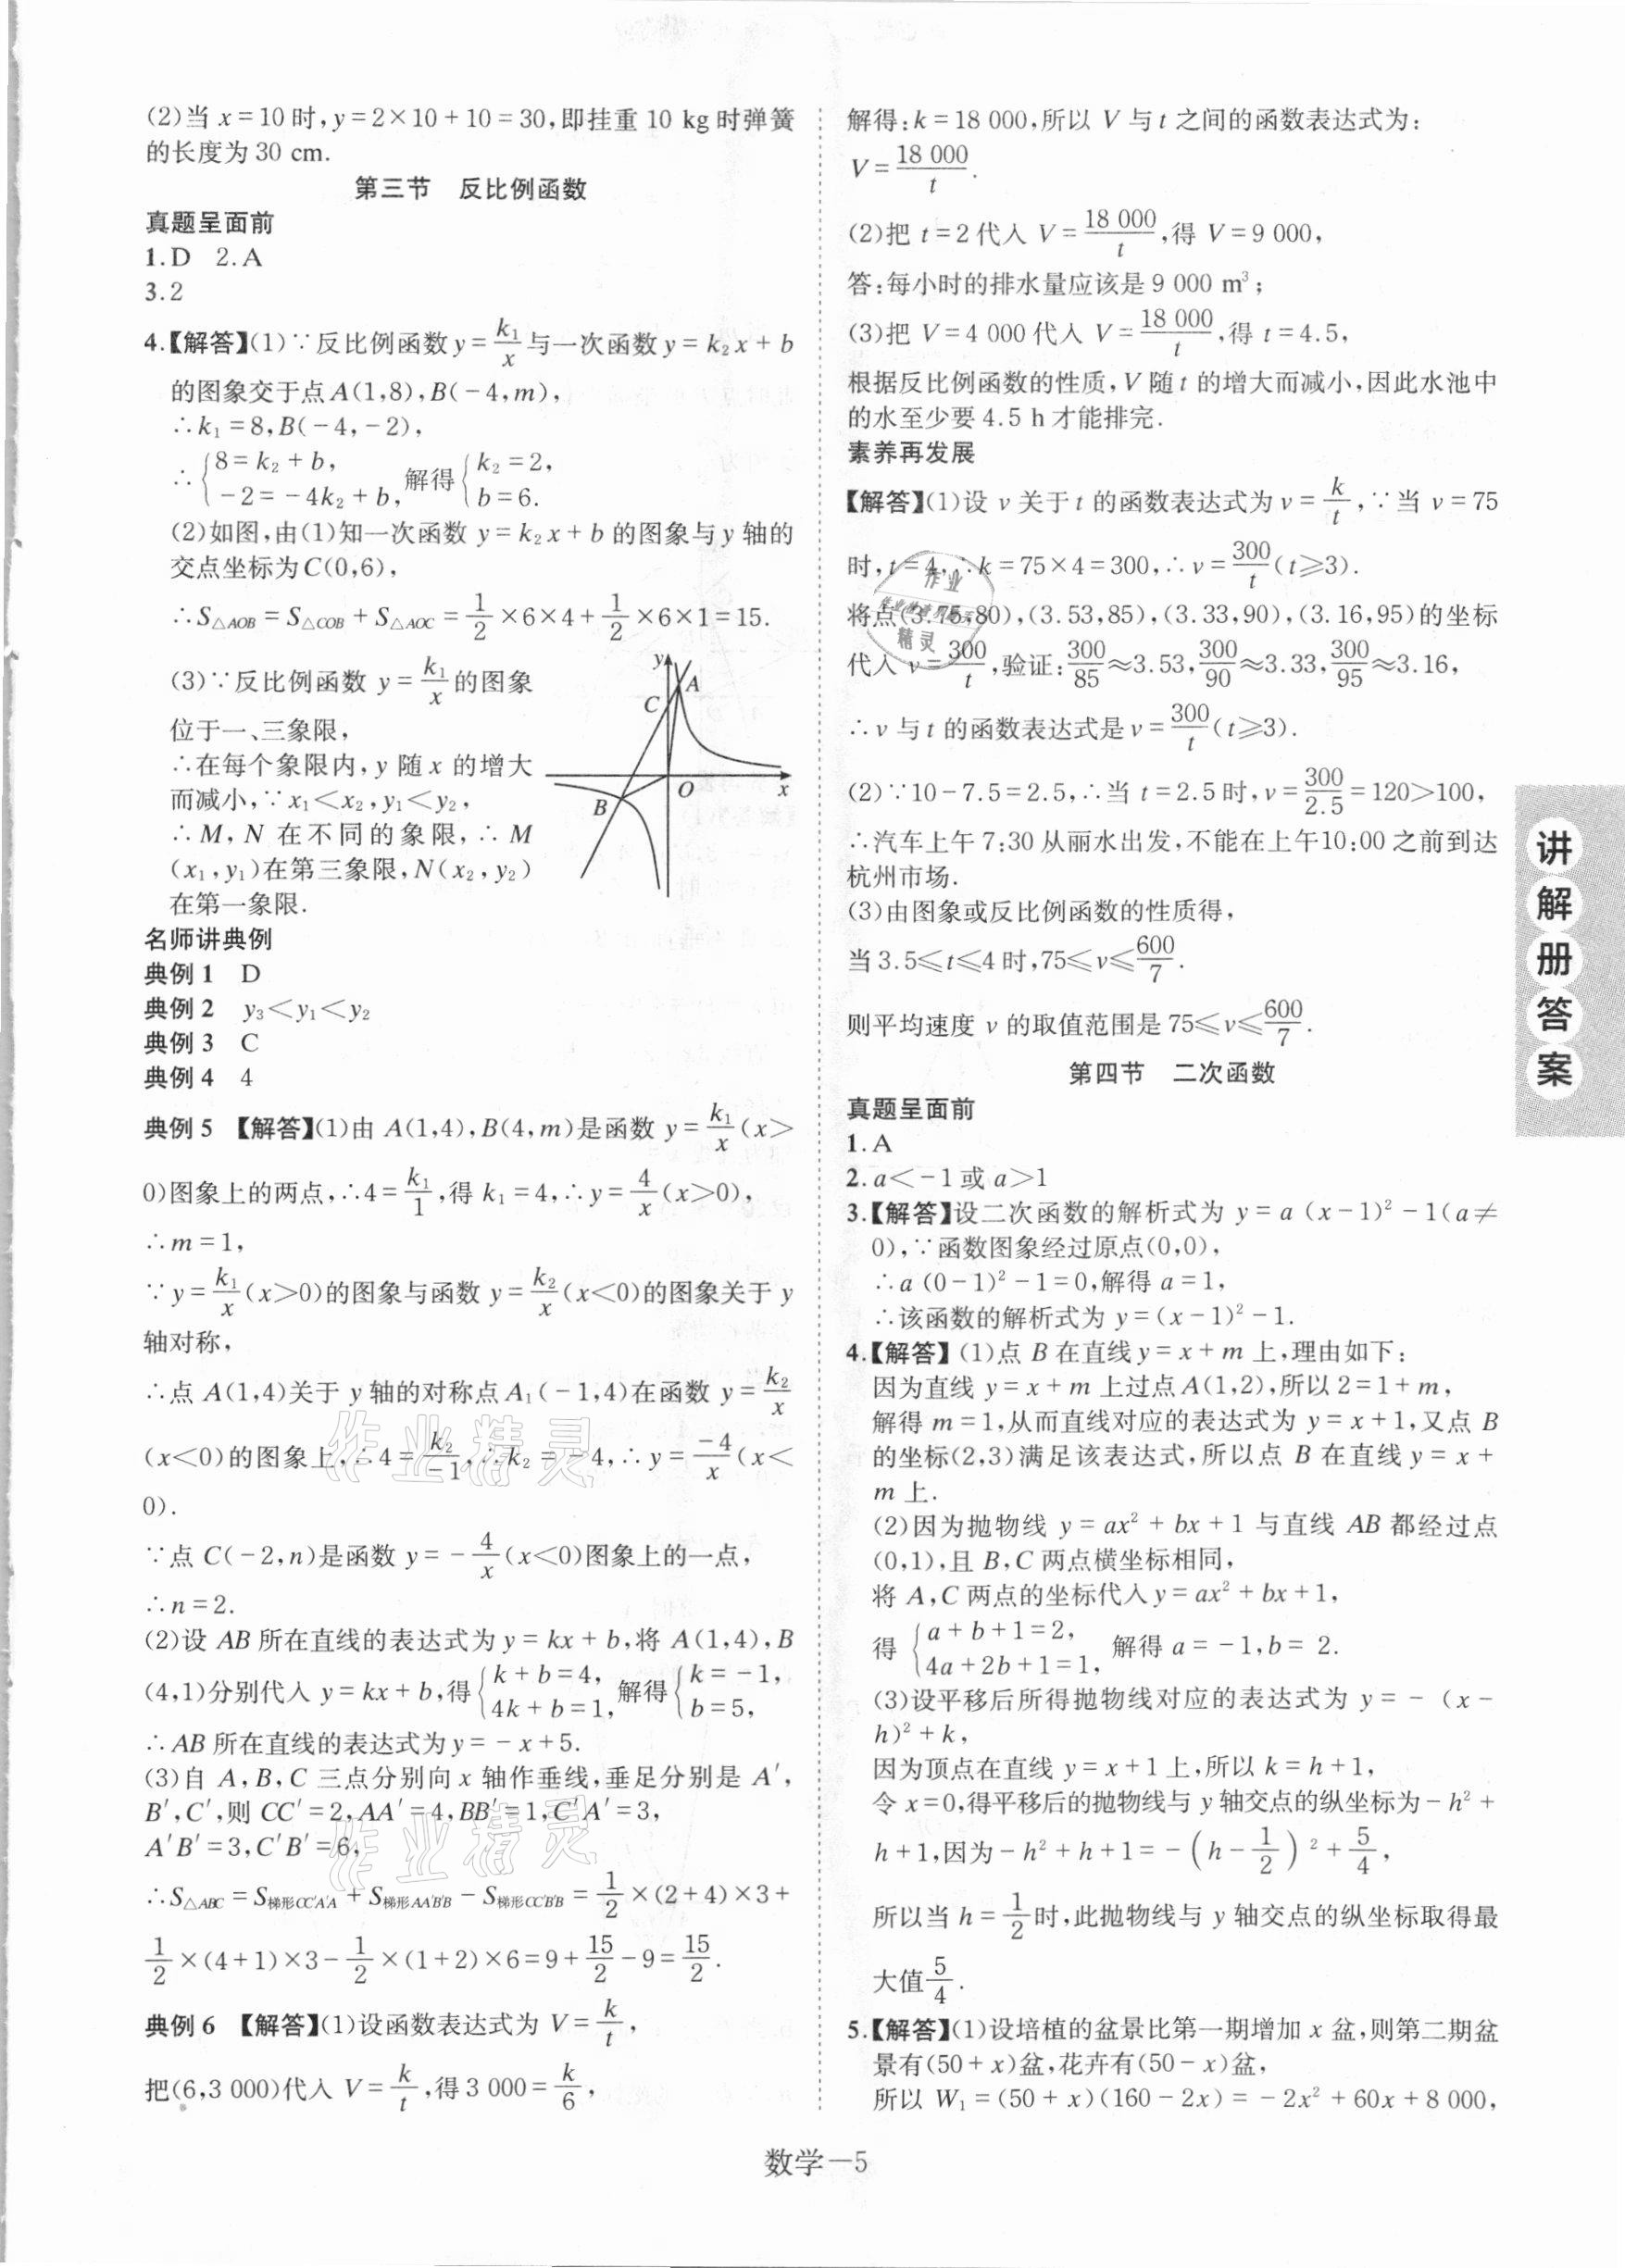 (2)当 x=10时,y=2×10+10=30,即挂重10 kg时弹簧
的长度为30 cm.
第三节 反比例函数
真题呈面前
1.D 2.A
3.2
4.【解答】(1)∵反比例函数y=k₁/x与一次函数y=k₂x+b
的图象交于点A(1,8),B(-4,m),
∴k₁=8,B(-4,-2),
∴{8=k₂+b, -2=-4k₂+b, 解得{k₂=2, b=6.
(2)如图,由(1)知一次函数 y=k₂x+b 的图象与y轴的
交点坐标为C(0,6),
∴S△AOB=S△COB+S△AOC=1/2×6×4+1/2×6×1=15.
(3)∵反比例函数 y=k₁/x的图象
位于一、三象限,
∴在每个象限内,y 随 x 的增大
而减小,∵x₁<x₂,y₁<y₂,
∴M,N 在不同的象限,∴M
(x₁,y₁)在第三象限,N(x₂,y₂)
在第一象限.
y
A
C
O
x
B
名师讲典例
典例1 D
典例2 y₃<y₁<y₂
典例3 C
典例4 4
典例5 【解答】(1)由 A(1,4),B(4,m)是函数 y=k₁/x(x>
0)图象上的两点,∴4=k₁/1,得 k₁=4,∴y=4/x(x>0),
∴m=1,
∵y=k₁/x(x>0)的图象与函数 y=k₂/x(x<0)的图象关于 y
轴对称,
∴点 A(1,4)关于 y 轴的对称点A₁(-1,4)在函数 y=k₂/x
(x<0)的图象上,∴4=k₂/-1,∴k₂=-4,∴y=-4/x(x<
0).
∵点 C(-2,n)是函数 y=-4/x(x<0)图象上的一点,
∴n=2.
(2)设 AB 所在直线的表达式为y=kx+b,将 A(1,4),B
(4,1)分别代入 y=kx+b,得{k+b=4, 4k+b=1, 解得{k=-1, b=5,
∴AB所在直线的表达式为y=-x+5.
(3)自 A,B,C 三点分别向 x 轴作垂线,垂足分别是 A′,
B′,C′,则 CC′=2,AA′=4,BB′=1,C′A′=3,
A′B′=3,C′B′=6,
∴S△ABC=S梯形CC′A′A+S梯形AA′B′B-S梯形CC′B′B=1/2×(2+4)×3+
1/2×(4+1)×3-1/2×(1+2)×6=9+15/2-9=15/2.
典例6 【解答】(1)设函数表达式为 V=k/t,
把(6,3 000)代入 V=k/t,得3 000=k/6,
解得:k=18 000,所以 V 与t 之间的函数表达式为:
V=18 000/t.
(2)把 t=2代入 V=18 000/t,得 V=9 000,
答:每小时的排水量应该是9 000 m³;
(3)把 V=4 000代入 V=18 000/t,得 t=4.5,
根据反比例函数的性质,V 随t 的增大而减小,因此水池中
的水至少要4.5 h才能排完.
素养再发展
【解答】(1)设 v 关于 t 的函数表达式为 v=k/t,∵当 v=75
时,t=4,∴k=75×4=300,∴v=300/t(t≥3).
将点(3.75,80),(3.53,85),(3.33,90),(3.16,95)的坐标
代入 v=300/t,验证:300/85≈3.53,300/90≈3.33,300/95≈3.16,
∴v 与t 的函数表达式是v=300/t(t≥3).
(2)∵10-7.5=2.5,∴当 t=2.5时,v=300/2.5=120>100,
∴汽车上午 7:30 从丽水出发,不能在上午10:00 之前到达
杭州市场.
(3)由图象或反比例函数的性质得,
当3.5≤t≤4时,75≤v≤600/7.
则平均速度 v 的取值范围是75≤v≤600/7.
第四节 二次函数
真题呈面前
1.A
2.a<-1或 a>1
3.【解答】设二次函数的解析式为 y=a (x-1)²-1(a≠
0),∵函数图象经过原点(0,0),
∴a (0-1)²-1=0,解得 a=1,
∴该函数的解析式为 y=(x-1)²-1.
4.【解答】(1)点 B 在直线y=x+m 上,理由如下:
因为直线 y=x+m 上过点A(1,2),所以2=1+m,
解得 m=1,从而直线对应的表达式为 y=x+1,又点 B
的坐标(2,3)满足该表达式,所以点 B 在直线y=x+
m上.
(2)因为抛物线 y=ax²+bx+1 与直线 AB 都经过点
(0,1),且 B,C 两点横坐标相同,
将 A,C 两点的坐标代入y=ax²+bx+1,
得 {a+b+1=2, 4a+2b+1=1, 解得 a=-1,b=2.
(3)设平移后所得抛物线对应的表达式为 y=-(x-
h)²+k,
因为顶点在直线 y=x+1上,所以 k=h+1,
令 x=0,得平移后的抛物线与 y轴交点的纵坐标为-h²+
h+1,因为-h²+h+1=-(h-1/2)²+5/4,
所以当 h=1/2时,此抛物线与 y 轴交点的纵坐标取得最
大值5/4.
5.【解答】(1)设培植的盆景比第一期增加 x 盆,则第二期盆
景有(50+x)盆,花卉有(50-x)盆,
所以 W₁=(50+x)(160-2x)=-2x²+60x+8 000,
讲解册答案
作业
精灵
作业精灵
作业精灵
数学—5